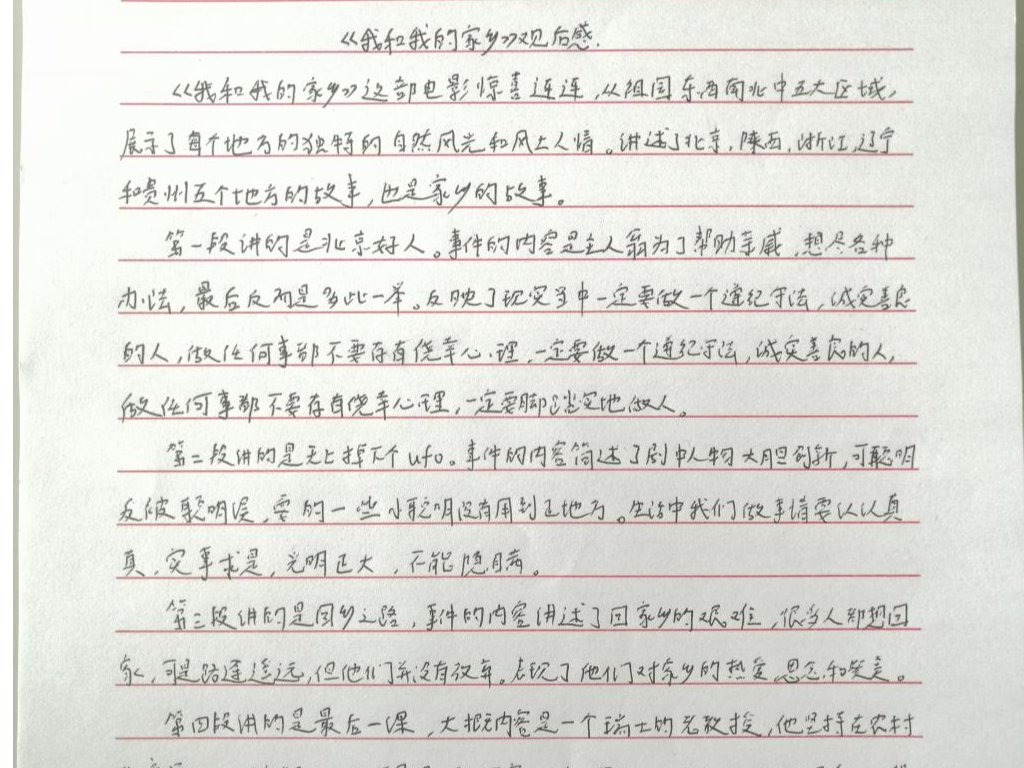 《我和我的家乡》观后感.
《我和我的家乡》这部电影惊喜连连,从祖国东西南北中五大区域,
展示了每个地方的独特的自然风光和风土人情。讲述了北京,陕西,浙江,辽宁
和贵州五个地方的故事,也是家乡的故事。
第一段讲的是北京好人。事件的内容是主人翁为了帮助亲戚,想尽各种
办法,最后反而是多此一举。反映了现实当中一定要做一个遵纪守法,诚实善良
的人,做任何事都不要存有侥幸心理,一定要做一个遵纪守法,诚实善良的人,
做任何事都不要存有侥幸心理,一定要脚踏实地做人。
第二段讲的是天上掉下个ufo。事件的内容简述了剧中人物大胆创新,可聪明
反被聪明误,耍的一些小聪明没有用到正地方。生活中我们做事情要认认真
真,实事求是,光明正大,不能隐瞒。
第三段讲的是回乡之路,事件的内容讲述了回家乡的艰难,很多人都想回
家,可是路途遥远,但他们并没有放弃。表现了他们对家乡的热爱,思念和赞美。
第四段讲的是最后一课,大概内容是一个瑞士的老教授,他坚持在农村